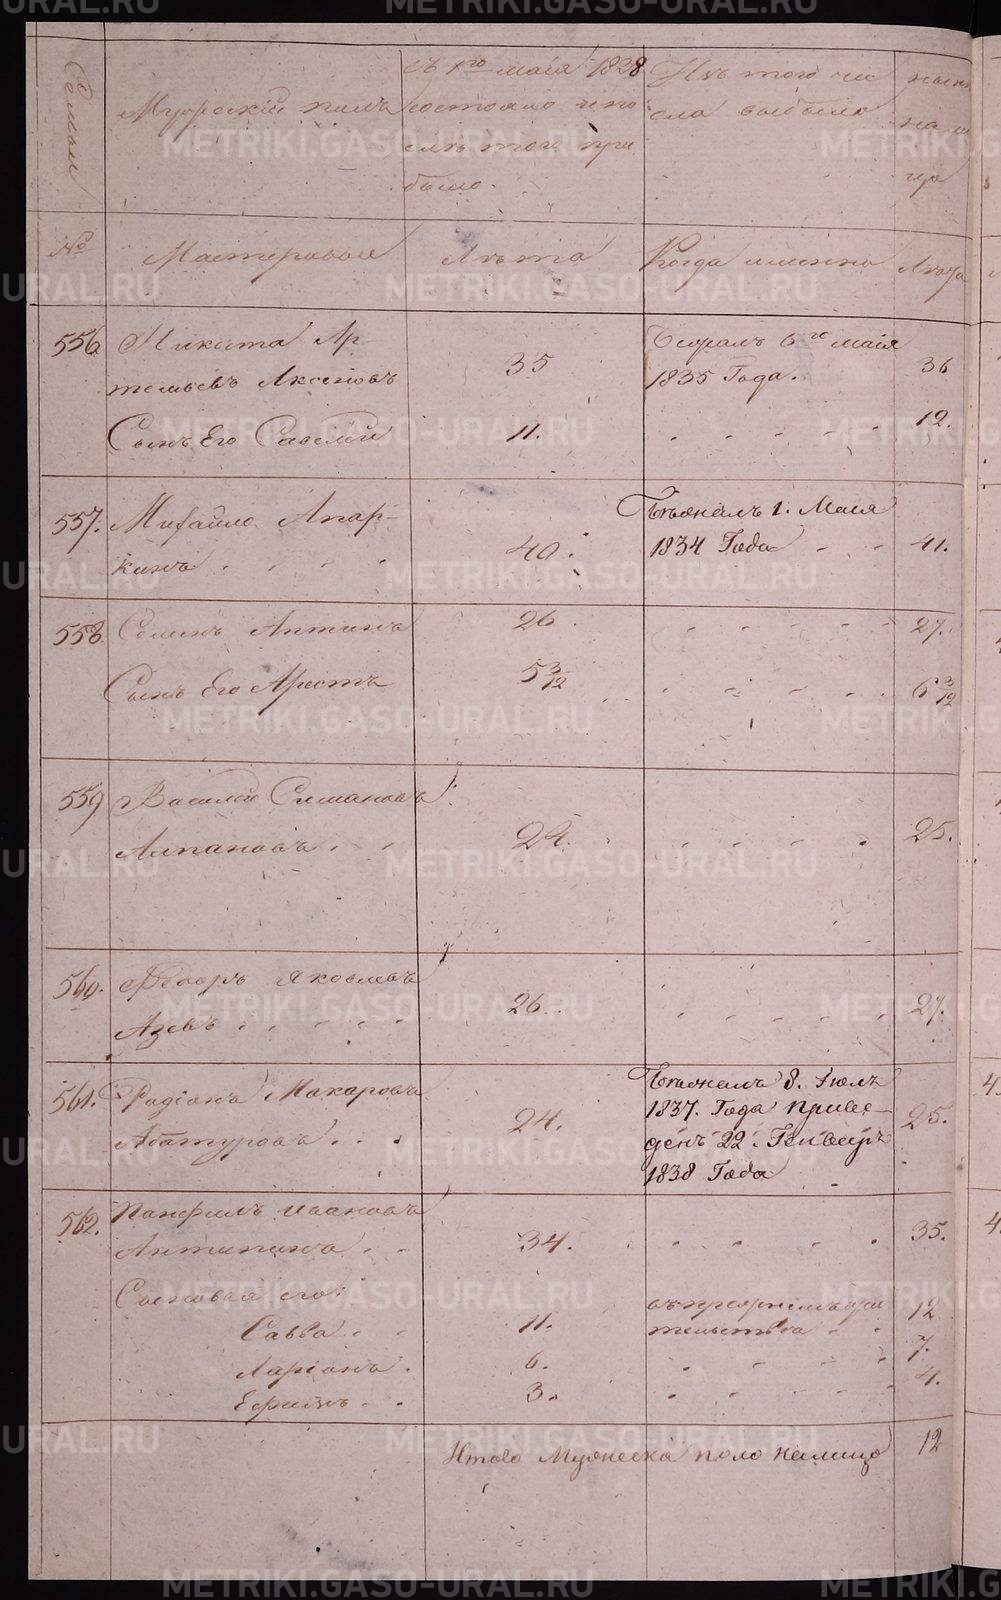 Семьи
Мужескій полъ
съ 1го маія 1828
состояло и по
слѣ того при
было.
Изъ того чи
сла выбыло
нынѣ
на ли
цо
№
Мастеровые
Лѣта
Когда именно
Лѣта
556 Никита Ар
темьевъ Аксеновъ 35
Померъ 6го маія
1835 Года. 36
Сынъ Его Савелей 11. 12.
557. Михайло Апар-
кинъ 40.
Бѣжалъ 1. Маія
1834 Года 41.
558 Семенъ Антинъ 26 27.
Сынъ Его Арестъ 5 3/12 6 3/12
559 Василей Симановъ
Алпановъ 24. 25.
560. Ѳедоръ Яковлевъ
Азевъ 26. 27.
561. Радіонъ Макаровъ
Абатуровъ 24.
Бѣжалъ 8. Июлъ
1837. Года Приве-
денъ 22. Генваръ
1838 Года 25.
562. Панфилъ Ивановъ
Антипинъ 34. 35.
Сыновья его:
Савва 11. 12
тельства
Ларіонъ 6. 7.
Ефимъ 3. 4.
Итого Мужеска поло налицо 12
METRIKI.GASO-URAL.RU